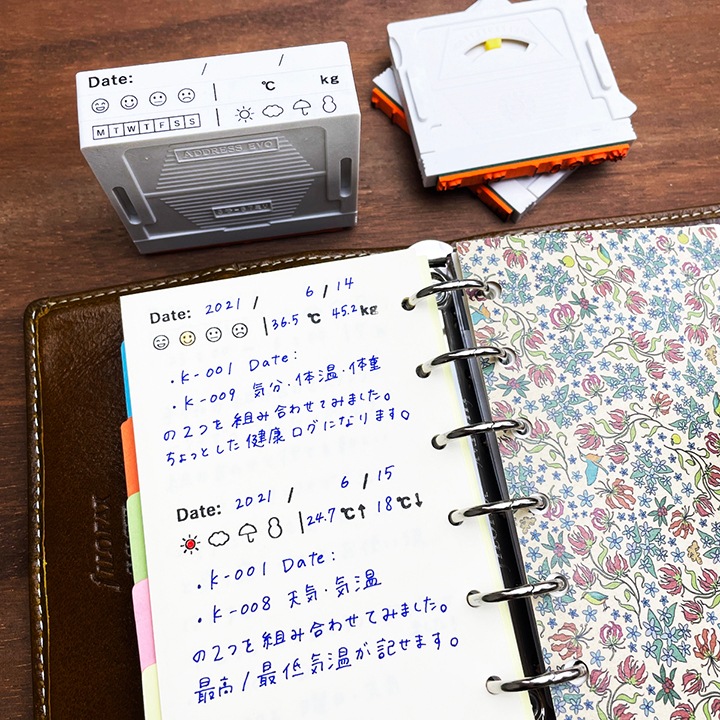 Date: / /
℃ kg
M T W T F S S
ADDRESS EVO
Date: 2021 / 6 / 14
36.5 ℃ 45.2 kg
・K-001 Date:
・K-009 気分・体温・体重
の2つを組み合わせてみました。
ちょっとした健康ログになります。
Date: 2021 / 6 / 15
24.7 ℃↑ 18 ℃↓
・K-001 Date:
・K-008 天気・気温
の2つを組み合わせてみました。
最高/最低気温が記せます。